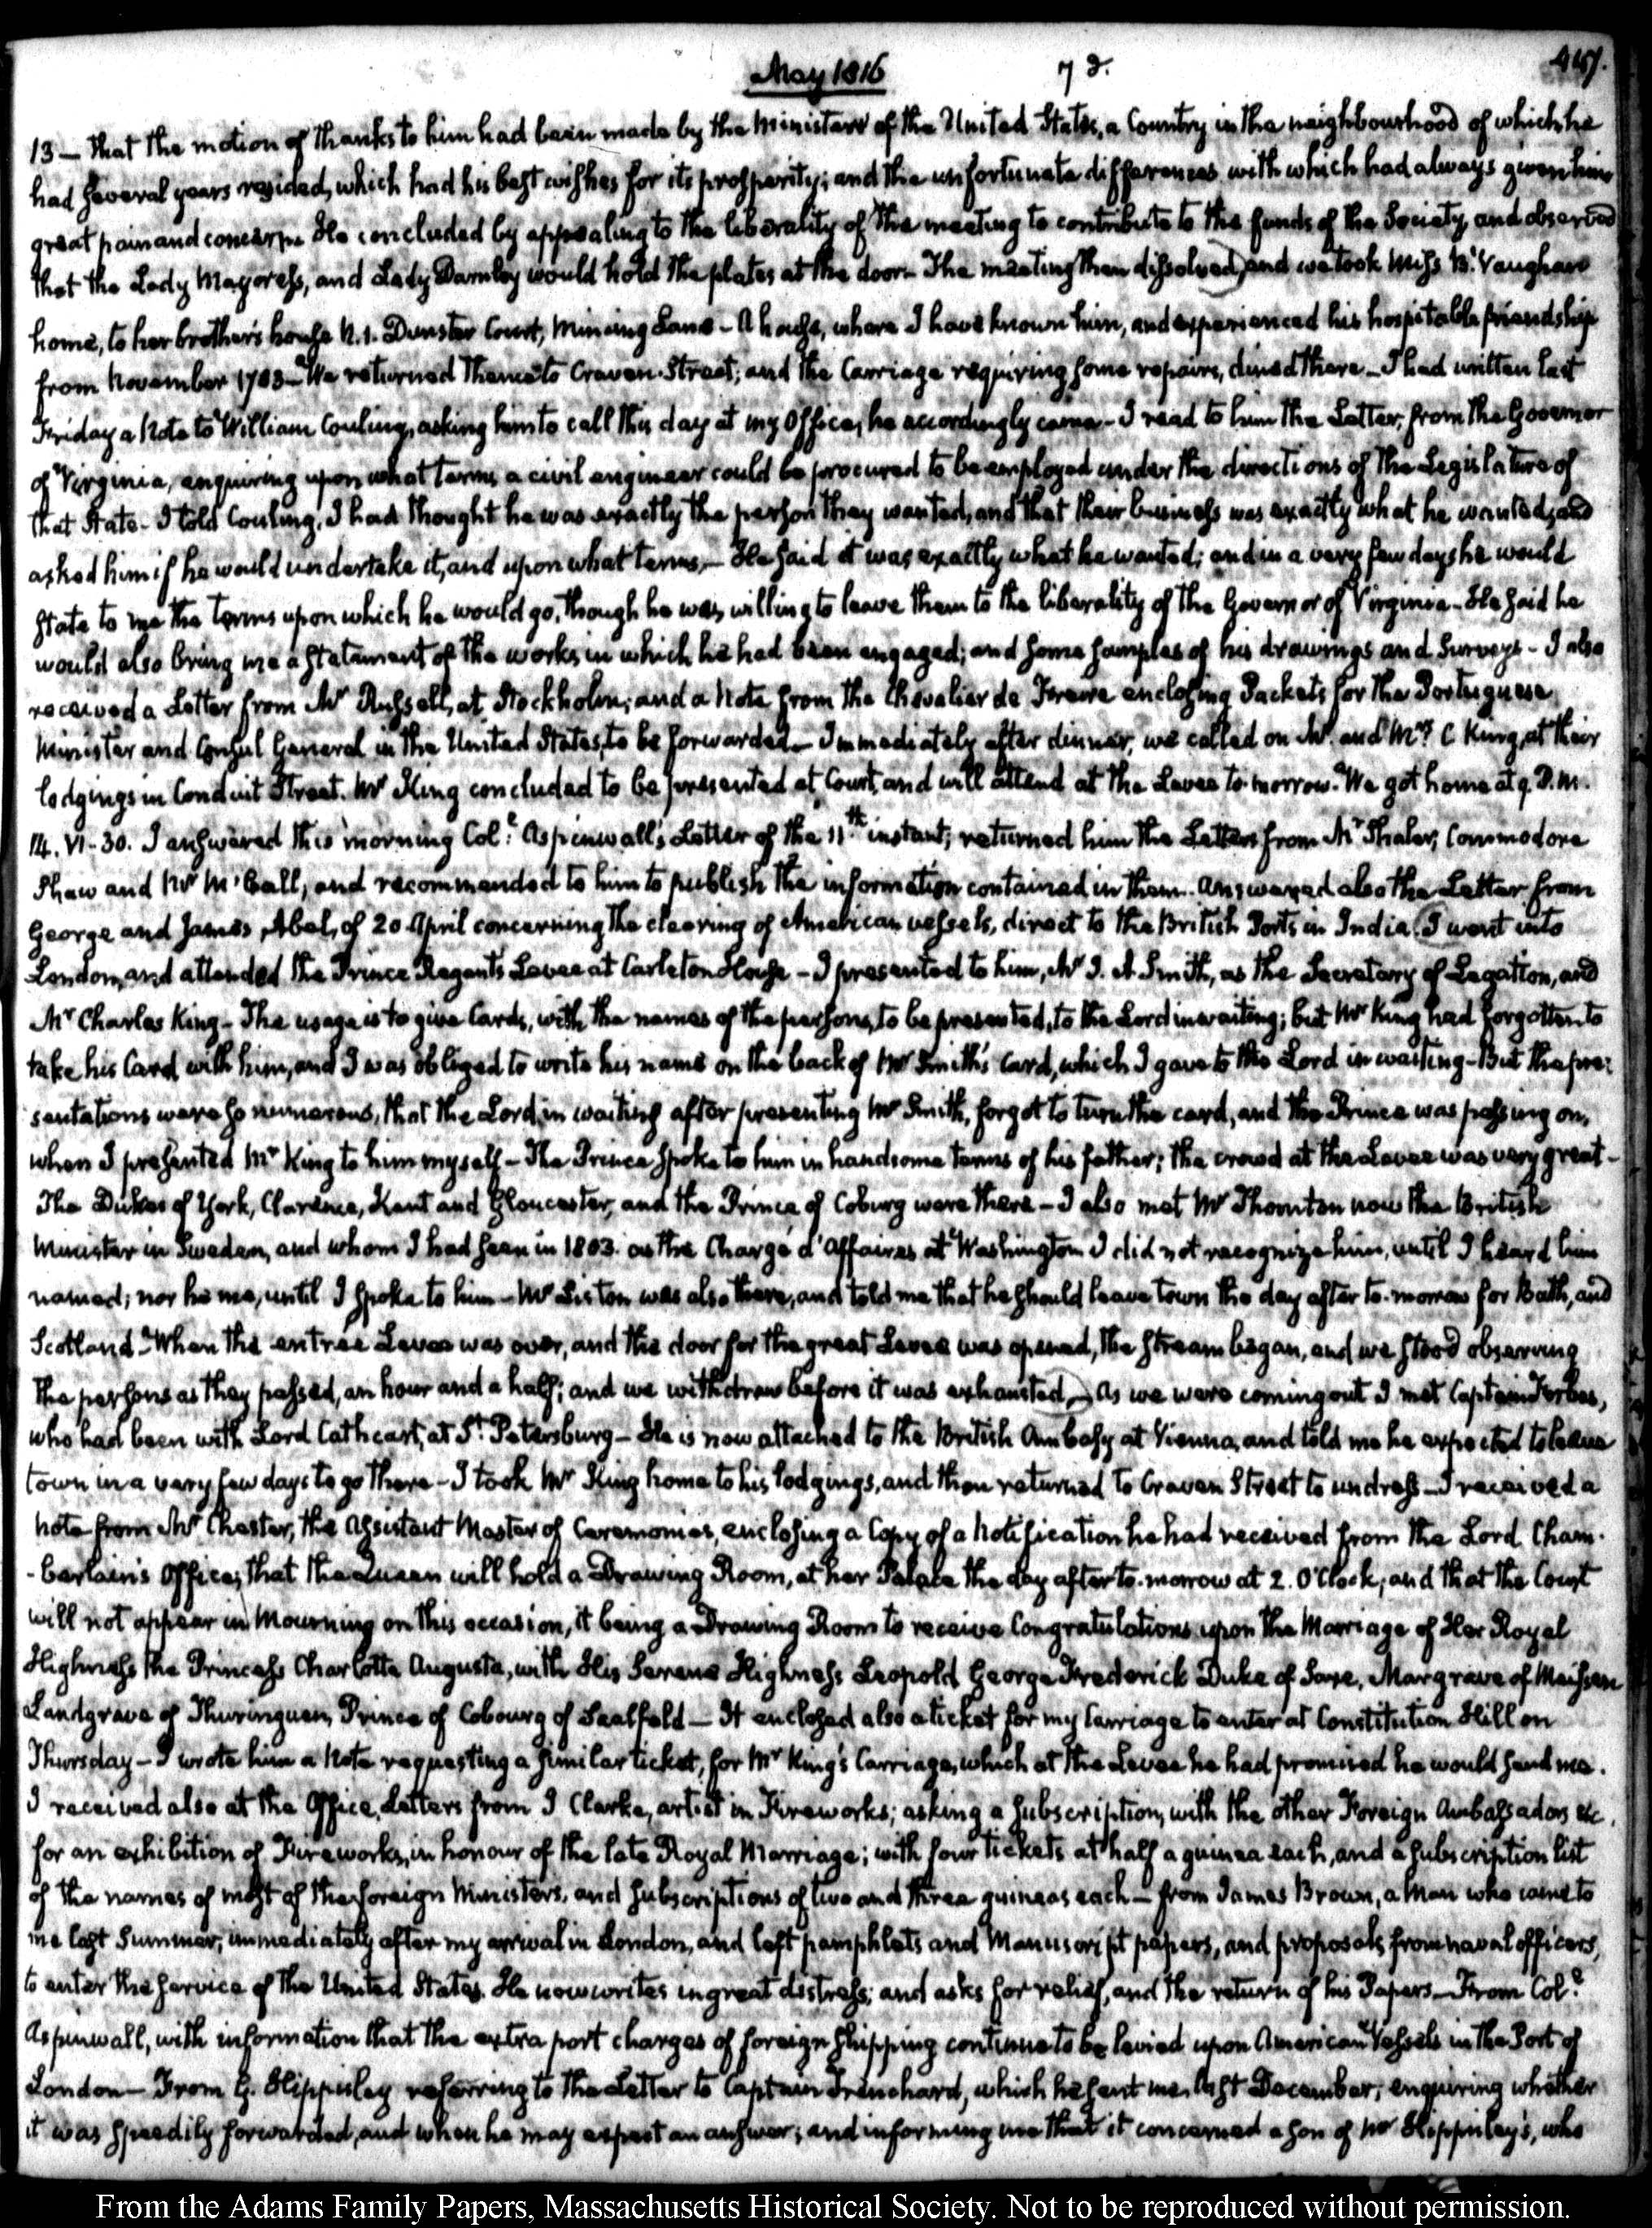 May 1816 73. 457.
13 — that the motion of thanks to him had been made by the Minister of the United States, a Country in the neighbourhood of which he
had several years resided, which had his best wishes for its prosperity; and the unfortunate differences with which had always given him
great pain and concern. He concluded by appealing to the liberality of the meeting to contribute to the funds of the Society, and observed
that the Lady Mayoress, and Lady Darnley would hold the plates at the door. The meeting then dissolved, and we took Miss B. Vaughan
home, to her brother's house N. 1. Dunster Court, Mincing Lane - A house, where I have known him, and experienced his hospitable friendship
from November 1783 - We returned thence to Craven Street; and the Carriage requiring some repairs, dined there - I had written last
Friday a Note to William Couling, asking him to call this day at my Office; he accordingly came - I read to him the Letter, from the Governor
of Virginia, enquiring upon what terms a civil engineer could be procured to be employed under the directions of the Legislature of
that State - I told Couling, I had thought he was exactly the person they wanted, and that their business was exactly what he wanted; and
asked him if he would undertake it, and upon what terms, - He said it was exactly what he wanted; and in a very few days he would
state to me the terms upon which he would go, though he was willing to leave them to the liberality of the Governor of Virginia - He said he
would also bring me a statement of the works in which he had been engaged; and some samples of his drawings and Surveys - I also
received a Letter from Mr Russell, at Stockholm; and a Note from the Chevalier de Freire enclosing Packets for the Portuguese
Minister and Consul General in the United States, to be forwarded - Immediately after dinner, we called on Mr. and Mrs. C King, at their
lodgings in Conduit Street. Mr King concluded to be presented at Court, and will attend at the Levee to-morrow. We got home at 9 P.M.
14. VI-30. I answered this morning Coll. Aspinwall's Letter of the 11th instant; returned him the Letters from Mr Shaler, Commodore
Shaw and Mr McCall, and recommended to him to publish the information contained in them. Answered also the Letter from
George and James Abel, of 20 April concerning the clearing of American vessels, direct to the British Ports in India. I went into
London, and attended the Prince Regent's Levee at Carleton House - I presented to him, Mr J. A. Smith, as the Secretary of Legation, and
Mr Charles King - The usage is to give Cards, with the names of the persons, to be presented, to the Lord in waiting; but Mr King had forgotten to
take his Card with him, and I was obliged to write his name on the back of Mr Smith's Card, which I gave to the Lord in waiting - But the pre:
sentations were so numerous, that the Lord in waiting after presenting Mr Smith, forgot to turn the card, and the Prince was passing on,
when I presented Mr King to him myself - The Prince spoke to him in handsome terms of his father; the crowd at the Levee was very great -
The Dukes of York, Clarence, Kent and Gloucester, and the Prince of Coburg were there - I also met Mr Thornton now the British
Minister in Sweden, and whom I had seen in 1803. as the Chargé d'Affaires at Washington I did not recognize him, until I heard him
named; nor he me, until I spoke to him - Mr Liston was also there, and told me that he should leave town the day after to-morrow for Bath, and
Scotland - When the entree Levee was over, and the door for the great Levee was opened, the stream began, and we stood observing
the persons as they passed, an hour and a half; and we withdrew before it was exhausted. As we were coming out I met Captain Forbes,
who had been with Lord Cathcart, at St. Petersburg - He is now attached to the British Embassy at Vienna, and told me he expected to leave
town in a very few days to go there - I took Mr King home to his lodgings, and then returned to Craven Street to undress - I received a
Note from Mr Chester, the Assistant Master of Ceremonies, enclosing a Copy of a Notification he had received from the Lord Cham-
-berlain's Office, that the Queen will hold a Drawing Room, at her Palace the day after to-morrow at 2. O'Clock; and that the Court
will not appear in Mourning on this occasion, it being a Drawing Room to receive Congratulations upon the Marriage of Her Royal
Highness the Princess Charlotte Augusta, with His Serene Highness Leopold George Frederick Duke of Saxe, Margrave of Meissen
Landgrave of Thuringuen, Prince of Cobourg of Saalfeld - It enclosed also a ticket for my Carriage to enter at Constitution Hill on
Thursday - I wrote him a Note requesting a similar ticket, for Mr King's Carriage, which at the Levee he had promised he would send me.
I received also at the Office, Letters from J Clarke, artist in Fireworks; asking a subscription, with the other Foreign Ambassadors &c.
for an exhibition of Fireworks, in honour of the late Royal Marriage; with four tickets at half a guinea each, and a subscription list
of the names of most of the foreign Ministers, and subscriptions of two and three guineas each - from James Brown, a Man who came to
me last Summer, immediately after my arrival in London, and left pamphlets and Manuscript papers, and proposals from naval officers,
to enter the service of the United States. He now writes in great distress; and asks for relief, and the return of his Papers - From Coll.
Aspinwall, with information that the extra port charges of foreign shipping continue to be levied upon American Vessels in the Port of
London - From G. Hippisley referring to the Letter to Captain Trenchard, which he sent me last December; enquiring whether
it was speedily forwarded, and when he may expect an answer; and informing me that it concerned a son of Mr Hippisley's, who
From the Adams Family Papers, Massachusetts Historical Society. Not to be reproduced without permission.